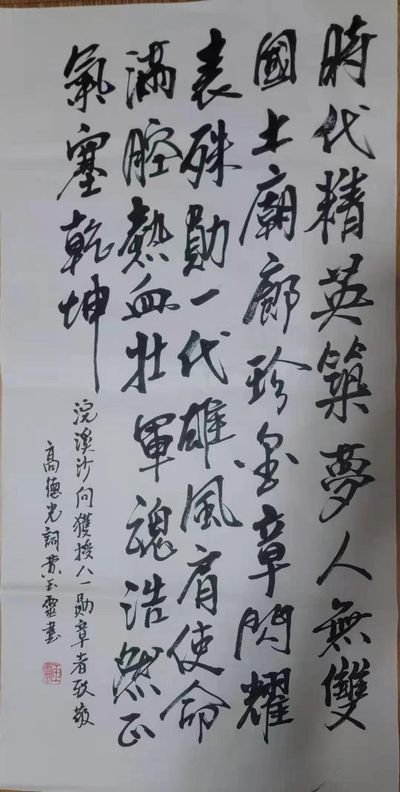 時代精英築夢人無雙
國士廟廊珍寶章閃耀
表殊勛一代雄風肩使命
滿腔熱血壯軍魂浩然正
氣塞乾坤
浣溪沙向獲授八一勛章者致敬
高德光詞黃玉靈書